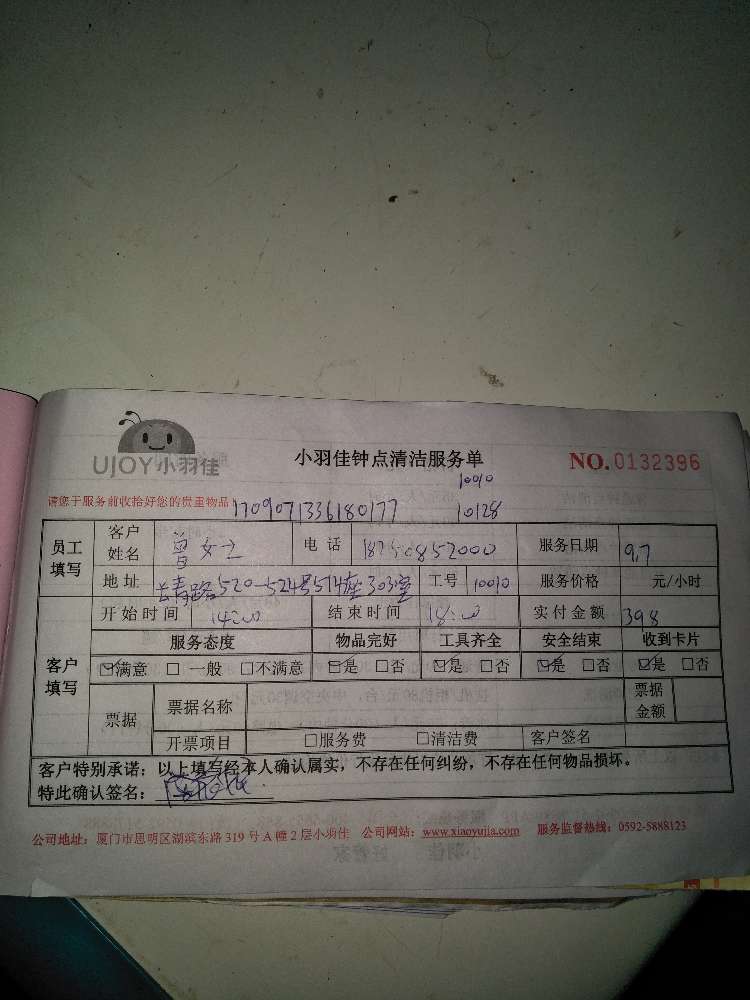 UJOY小羽佳
小羽佳钟点清洁服务单
NO.0132396
10010
请您于服务前收拾好您的贵重物品 1709071336180177 10128
员工填写 客户姓名 曾女士 电话 18750852000 服务日期 9.7
地址 长青路520-524号514座303室 工号 10010 服务价格 元/小时
客户填写 开始时间 14:00 结束时间 18:00 实付金额 398
服务态度 物品完好 工具齐全 安全结束 收到卡片
☑满意 □一般 □不满意 ☑是 □否 ☑是 □否 ☑是 □否 ☑是 □否
票据 票据名称 票据金额
开票项目 □服务费 □清洁费 客户签名
客户特别承诺：以上填写经本人确认属实，不存在任何纠纷，不存在任何物品损坏。
特此确认签名：
公司地址：厦门市思明区湖滨东路319号A幢2层小羽佳 公司网站：www.xiaoyujia.com 服务监督热线：0592-5888123